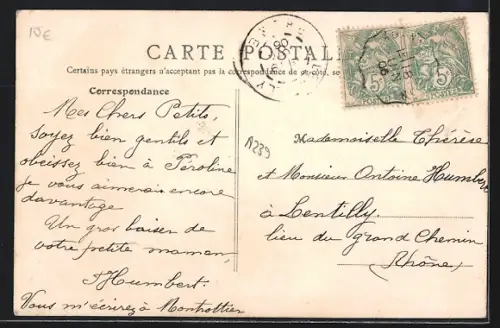 15€
CARTE POSTALE
Certains pays étrangers n'acceptant pas la correspondance de ce côté, se
Correspondance
Mes Chers Petits,
Soyez bien gentils et
obéissez bien à
je vous aimerais encore
davantage
Un gros baiser de
votre petite maman,
JHumbert.
Vous m'écrirez à Montrottier
A239
Mademoiselle Thérèse
et Monsieur Antoine Humbert
à Lentilly.
lieu du Grand Chemin
Rhône
5
5